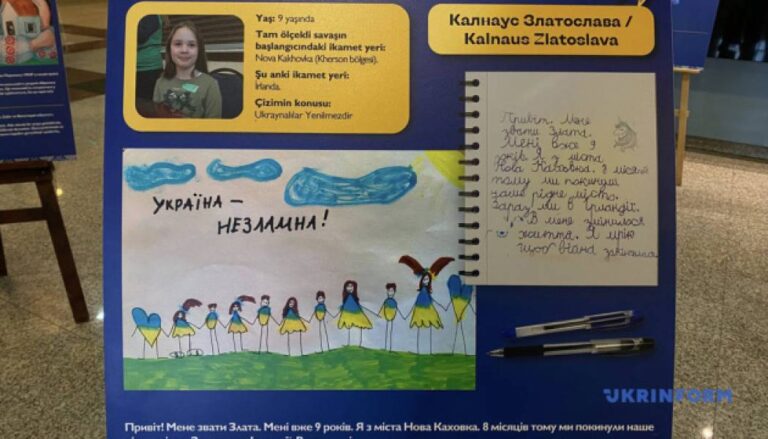 Калнаус Златослава /
Kalnaus Zlatoslava
Yaş: 9 yaşında
Tam ölçekli savaşın
başlangıcındaki ikamet yeri:
Nova Kakhovka (Kherson bölgesi).
Şu anki ikamet yeri:
İrlanda.
Çizimin konusu:
Ukraynalılar Yenilmezdir
УКРАЇНА –
НЕЗЛАМНА!
Привіт. Мене
звати Злата.
Мені вже 9
років. Я з міста
Нова Каховка. 8 місяців
тому ми покинули
наше рідне місто.
Зараз ми в Ірландії.
В мене змінилося
життя. Я мрію
щоб війна закінчилась
Привіт! Мене звати Злата. Мені вже 9 років. Я з міста Нова Каховка. 8 місяців тому ми покинули наше
UKRINFORM